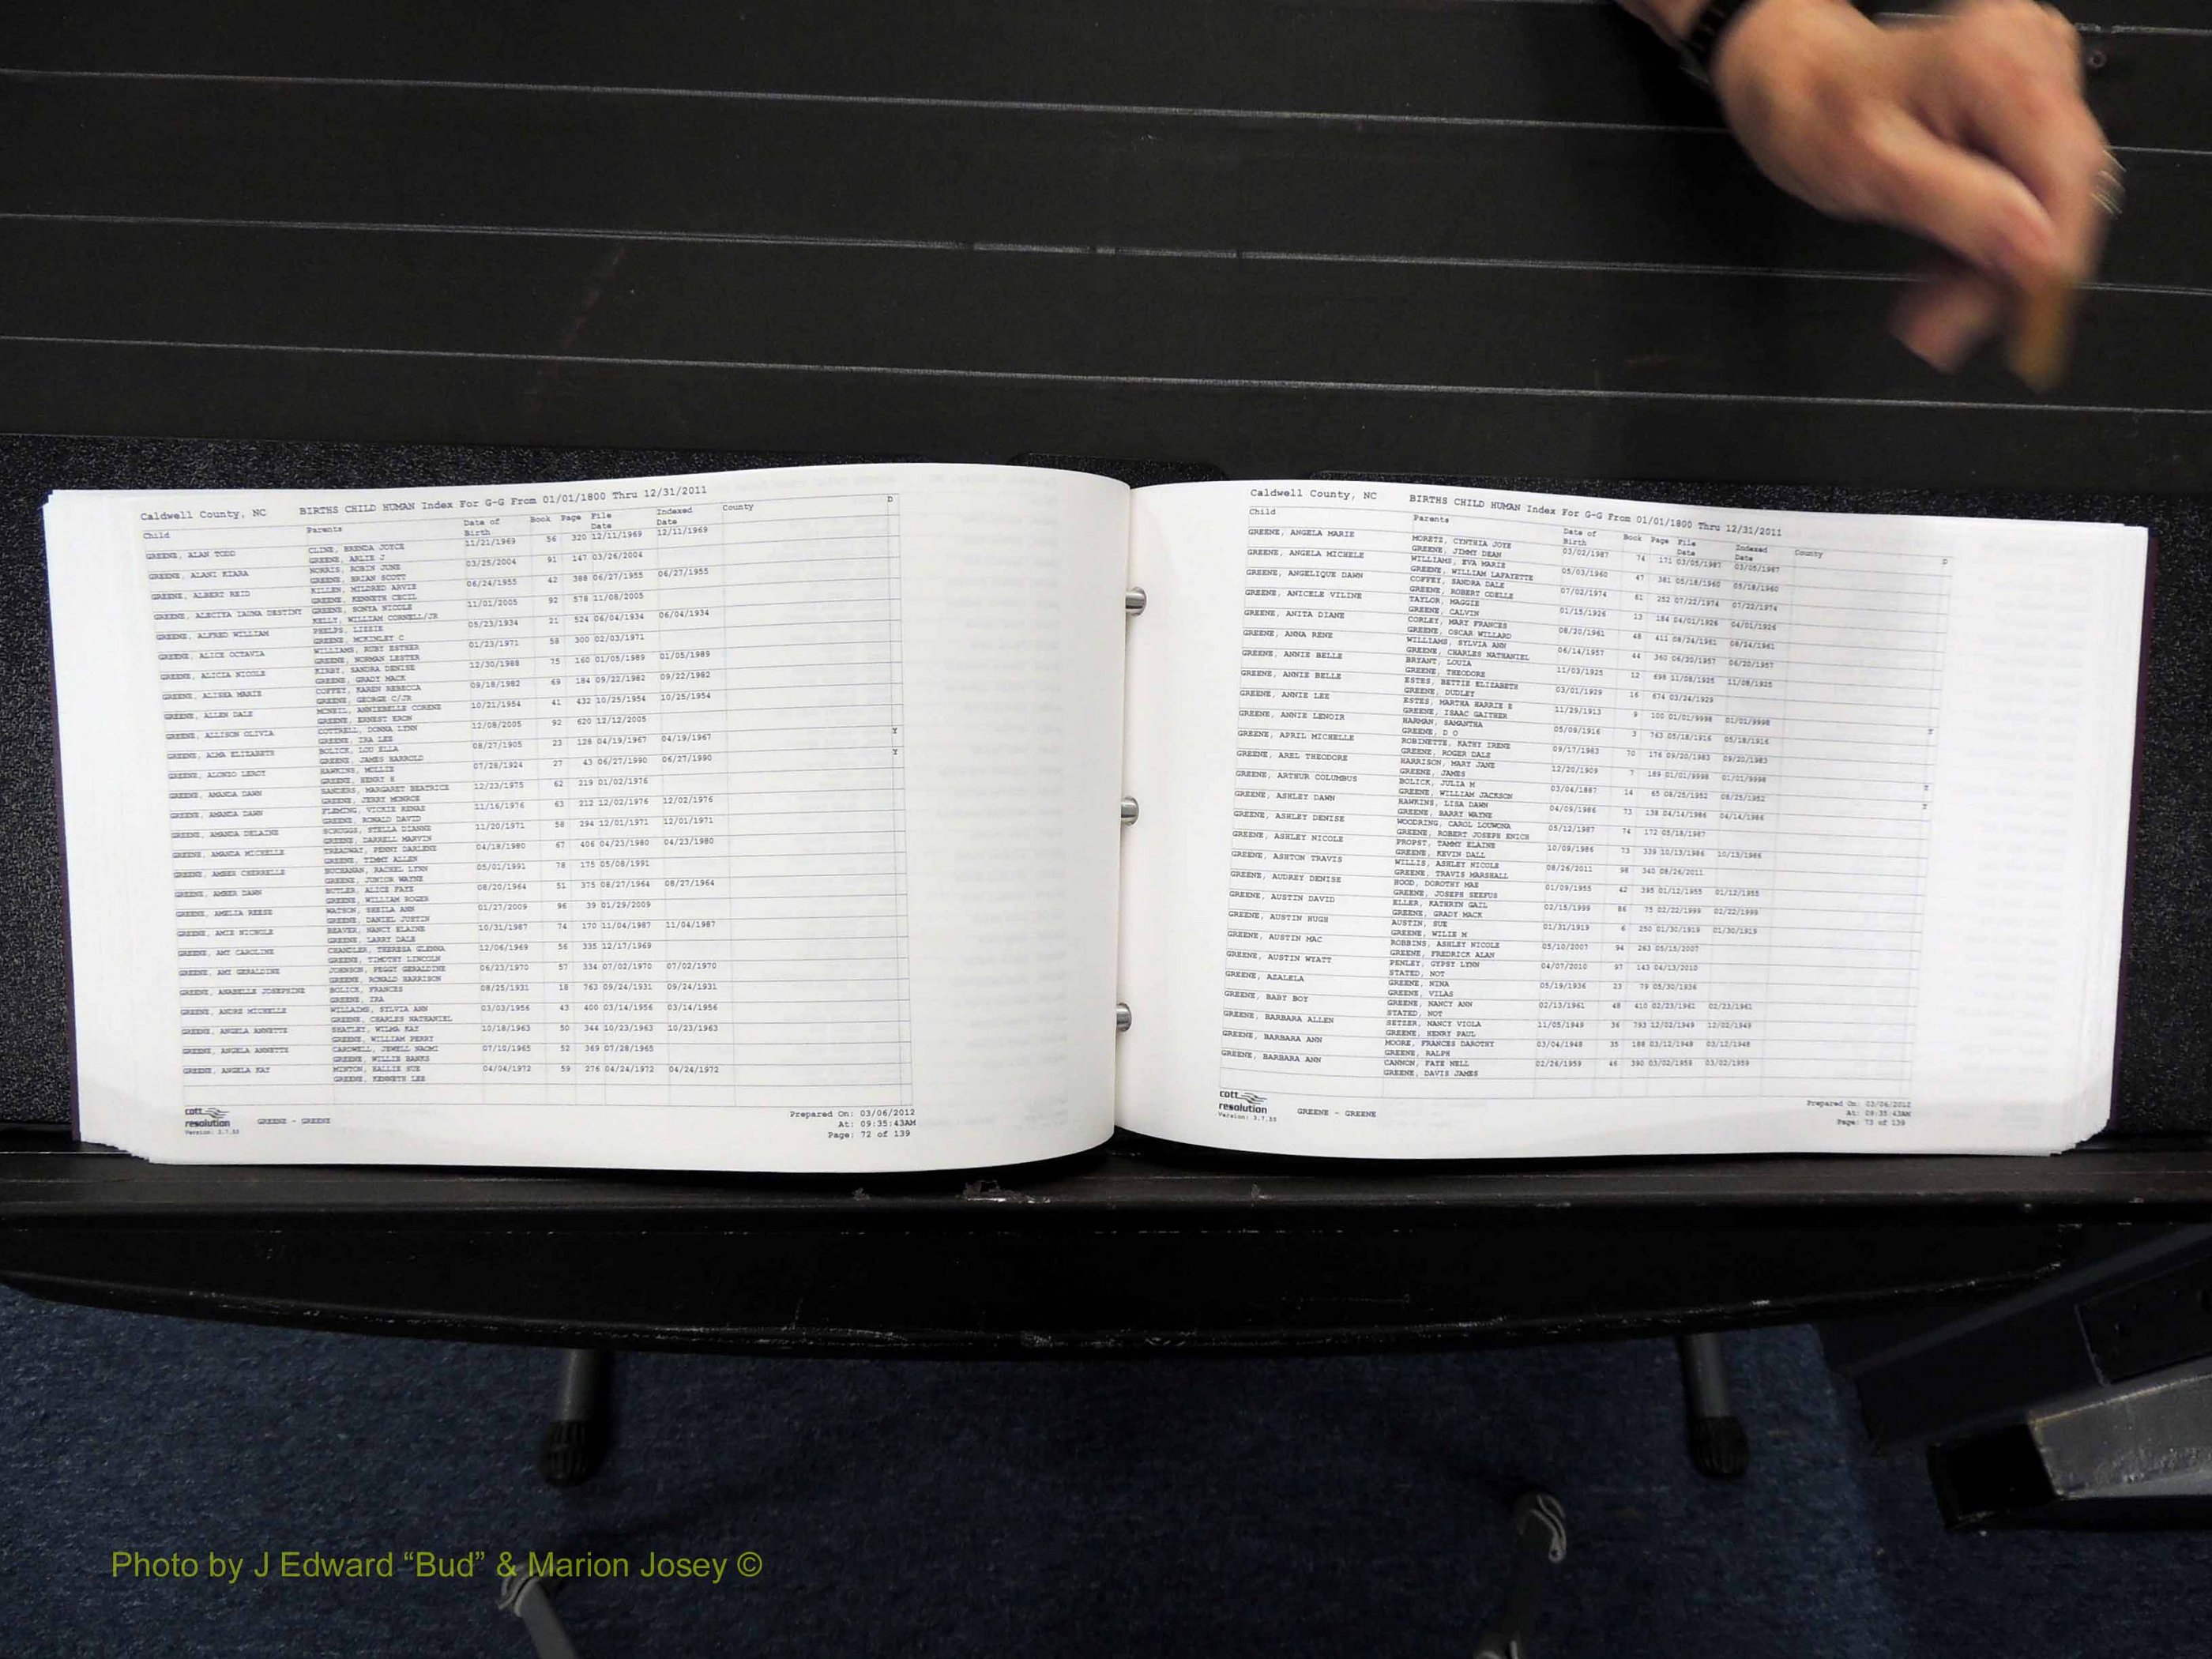 Caldwell County, NC BIRTHS CHILD HUMAN Index For G-G From 01/01/1800 Thru 12/31/2011
Child Parents Date of Birth Book Page File Date Indexed Date County D
GREENE, ALAN TODD CLINE, BRENDA JOYCE 11/21/1969 56 320 12/11/1969 12/11/1969
GREENE, ARLIE J
GREENE, ALANI KIARA NORRIS, ROBIN JUNE 03/25/2004 91 147 03/26/2004
GREENE, BRIAN SCOTT
GREENE, ALBERT REID KILLEN, MILDRED ARVIE 06/24/1955 42 388 06/27/1955 06/27/1955
GREENE, KENNETH CECIL
GREENE, ALECIYA IAUNA DESTINY GREENE, SONYA NICOLE 11/01/2005 92 578 11/08/2005
KELLY, WILLIAM CORNELL/JR
GREENE, ALFRED WILLIAM PHELPS, LIZZIE 05/23/1934 21 524 06/04/1934 06/04/1934
GREENE, MCKINLEY C
GREENE, ALICE OCTAVIA WILLIAMS, RUBY ESTHER 01/23/1971 58 300 02/03/1971
GREENE, NORMAN LESTER
GREENE, ALICIA NICOLE KIRBY, SANDRA DENISE 12/30/1988 75 160 01/05/1989 01/05/1989
GREENE, GRADY MACK
GREENE, ALISHA MARIE COFFEY, KAREN REBECCA 09/18/1982 69 184 09/22/1982 09/22/1982
GREENE, GEORGE C/JR
GREENE, ALLEN DALE MCNEIL, ANNIEBELLE CORENE 10/21/1954 41 432 10/25/1954 10/25/1954
GREENE, ERNEST ERON
GREENE, ALLISON OLIVIA COTTRELL, DONNA LYNN 12/08/2005 92 620 12/12/2005
GREENE, IRA LEE
GREENE, ALMA ELIZABETH BOLICK, LOU ELLA 08/27/1905 23 128 04/19/1967 04/19/1967 Y
GREENE, JAMES HARROLD
GREENE, ALONZO LEROY HAWKINS, MOLLIE 07/28/1924 27 43 06/27/1990 06/27/1990 Y
GREENE, HENRY H
GREENE, AMANDA DAWN SANDERS, MARGARET BEATRICE 12/23/1975 62 219 01/02/1976
GREENE, JERRY MONROE
GREENE, AMANDA DAWN FLEMING, VICKIE RENAE 11/16/1976 63 212 12/02/1976 12/02/1976
GREENE, RONALD DAVID
GREENE, AMANDA DELAINE SCRUGGS, STELLA DIANNE 11/20/1971 58 294 12/01/1971 12/01/1971
GREENE, DARRELL MARVIN
GREENE, AMANDA MICHELLE TREADWAY, PENNY DARLENE 04/18/1980 67 406 04/23/1980 04/23/1980
GREENE, TIMMY ALLEN
GREENE, AMBER CHERRELLE BUCHANAN, RACHEL LYNN 05/01/1991 78 175 05/08/1991
GREENE, JUNIOR WAYNE
GREENE, AMBER DAWN BUTLER, ALICE FAYE 08/20/1964 51 375 08/27/1964 08/27/1964
GREENE, WILLIAM ROGER
GREENE, AMELIA REESE WATSON, SHEILA ANN 01/27/2009 96 39 01/29/2009
GREENE, DANIEL JUSTIN
GREENE, AMIE NICHOLE BEAVER, NANCY ELAINE 10/31/1987 74 170 11/04/1987 11/04/1987
GREENE, LARRY DALE
GREENE, AMY CAROLINE CHANDLER, THERESA GLENNA 12/06/1969 56 335 12/17/1969
GREENE, TIMOTHY LINCOLN
GREENE, AMY GERALDINE JOHNSON, PEGGY GERALDINE 06/23/1970 57 334 07/02/1970 07/02/1970
GREENE, RONALD HARRISON
GREENE, ANABELLE JOSEPHINE BOLICK, FRANCES 08/25/1931 18 763 09/24/1931 09/24/1931
GREENE, IRA
GREENE, ANDRE MICHELLE WILLAIMS, SYLVIA ANN 03/03/1956 43 400 03/14/1956 03/14/1956
GREENE, CHARLES NATHANIEL
GREENE, ANGELA ANNETTE SHATLEY, WILMA KAY 10/18/1963 50 344 10/23/1963 10/23/1963
GREENE, WILLIAM PERRY
GREENE, ANGELA ANNETTE CARDWELL, JEWELL NAOMI 07/10/1965 52 369 07/28/1965
GREENE, WILLIE BANKS
GREENE, ANGELA KAY MINTON, HALLIE SUE 04/04/1972 59 276 04/24/1972 04/24/1972
GREENE, KENNETH LEE
cott resolution
Version: 3.7.35
GREENE - GREENE
Prepared On: 03/06/2012
At: 09:35:43AM
Page: 72 of 139
Caldwell County, NC BIRTHS CHILD HUMAN Index For G-G From 01/01/1800 Thru 12/31/2011
Child Parents Date of Birth Book Page File Date Indexed Date County D
GREENE, ANGELA MARIE MORETZ, CYNTHIA JOYE 03/02/1987 74 171 03/05/1987 03/05/1987
GREENE, JIMMY DEAN
GREENE, ANGELA MICHELE WILLIAMS, EVA MARIE 05/03/1960 47 381 05/18/1960 05/18/1960
GREENE, WILLIAM LAFAYETTE
GREENE, ANGELIQUE DAWN COFFEY, SANDRA DALE 07/02/1974 61 252 07/22/1974 07/22/1974
GREENE, ROBERT ODELLE
GREENE, ANICELE VILINE TAYLOR, MAGGIE 01/15/1926 13 184 04/01/1926 04/01/1926
GREENE, CALVIN
GREENE, ANITA DIANE CORLEY, MARY FRANCES 08/20/1961 48 411 08/24/1961 08/24/1961
GREENE, OSCAR WILLARD
GREENE, ANNA RENE WILLIAMS, SYLVIA ANN 06/14/1957 44 360 06/20/1957 06/20/1957
GREENE, CHARLES NATHANIEL
GREENE, ANNIE BELLE BRYANT, LOUIA 11/03/1925 12 698 11/08/1925 11/08/1925
GREENE, THEODORE
GREENE, ANNIE BELLE ESTES, BETTIE ELIZABETH 03/01/1929 16 674 03/24/1929
GREENE, DUDLEY
GREENE, ANNIE LEE ESTES, MARTHA HARRIE E 11/29/1913 9 100 01/01/9998 01/01/9998
GREENE, ISAAC GAITHER
GREENE, ANNIE LENOIR HARMAN, SAMANTHA 05/09/1916 3 763 05/18/1916 05/18/1916 Y
GREENE, D O
GREENE, APRIL MICHELLE ROBINETTE, KATHY IRENE 09/17/1983 70 176 09/20/1983 09/20/1983
GREENE, ROGER DALE
GREENE, AREL THEODORE HARRISON, MARY JANE 12/20/1909 7 189 01/01/9998 01/01/9998
GREENE, JAMES
GREENE, ARTHUR COLUMBUS BOLICK, JULIA M 03/04/1887 14 65 08/25/1952 08/25/1952 Y
GREENE, WILLIAM JACKSON
GREENE, ASHLEY DAWN HAWKINS, LISA DAWN 04/09/1986 73 138 04/14/1986 04/14/1986 Y
GREENE, BARRY WAYNE
GREENE, ASHLEY DENISE WOODRING, CAROL LOUWONA 05/12/1987 74 172 05/18/1987
GREENE, ROBERT JOSEPH ENICH
GREENE, ASHLEY NICOLE PROPST, TAMMY ELAINE 10/09/1986 73 339 10/13/1986 10/13/1986
GREENE, KEVIN DALL
GREENE, ASHTON TRAVIS WILLIS, ASHLEY NICOLE 08/26/2011 98 340 08/26/2011
GREENE, TRAVIS MARSHALL
GREENE, AUDREY DENISE HOOD, DOROTHY MAE 01/09/1955 42 395 01/12/1955 01/12/1955
GREENE, JOSEPH SEEFUS
GREENE, AUSTIN DAVID ELLER, KATHRYN GAIL 02/15/1999 86 75 02/22/1999 02/22/1999
GREENE, GRADY MACK
GREENE, AUSTIN HUGH AUSTIN, SUE 01/31/1919 6 250 01/30/1919 01/30/1919
GREENE, WILIE M
GREENE, AUSTIN MAC ROBBINS, ASHLEY NICOLE 05/10/2007 94 263 05/15/2007
GREENE, FREDRICK ALAN
GREENE, AUSTIN WYATT PENLEY, GYPSY LYNN 04/07/2010 97 143 04/13/2010
STATED, NOT
GREENE, AZALELA GREENE, NINA 05/19/1936 23 79 05/30/1936
GREENE, VILAS
GREENE, BABY BOY GREENE, NANCY ANN 02/13/1961 48 410 02/23/1961 02/23/1961
STATED, NOT
GREENE, BARBARA ALLEN SETZER, NANCY VIOLA 11/05/1949 36 793 12/02/1949 12/02/1949
GREENE, HENRY PAUL
GREENE, BARBARA ANN MOORE, FRANCES DAROTHY 03/04/1948 35 188 03/12/1948 03/12/1948
GREENE, RALPH
GREENE, BARBARA ANN CANNON, FAYE NELL 02/26/1959 46 390 03/02/1959 03/02/1959
GREENE, DAVIS JAMES
cott resolution
Version: 3.7.35
GREENE - GREENE
Prepared On: 03/06/2012
At: 09:35:43AM
Page: 73 of 139
Photo by J Edward “Bud” & Marion Josey ©